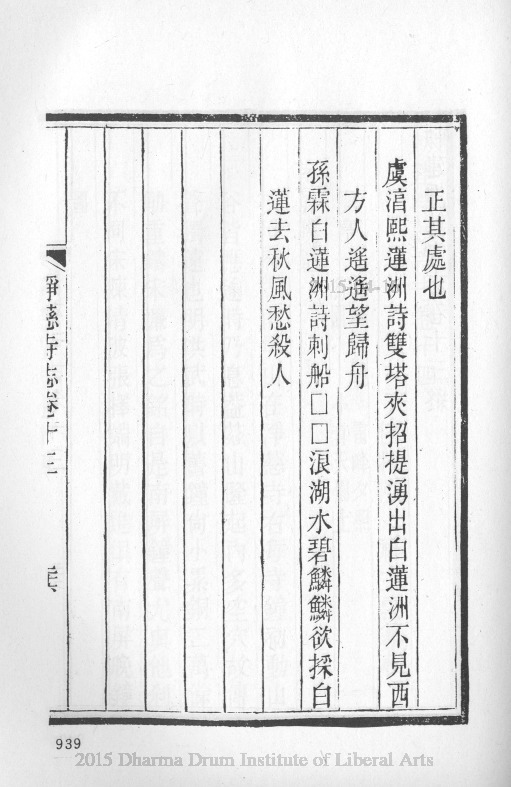 正其處也
虞淳熙蓮洲詩雙塔夾招提湧出白蓮洲不見西
方人遙遙望歸舟
孫霖白蓮洲詩刺船□□浪湖水碧鱗鱗欲採白
蓮去秋風愁殺人
淨慈寺志卷十三
939
2015 Dharma Drum Institute of Liberal Arts